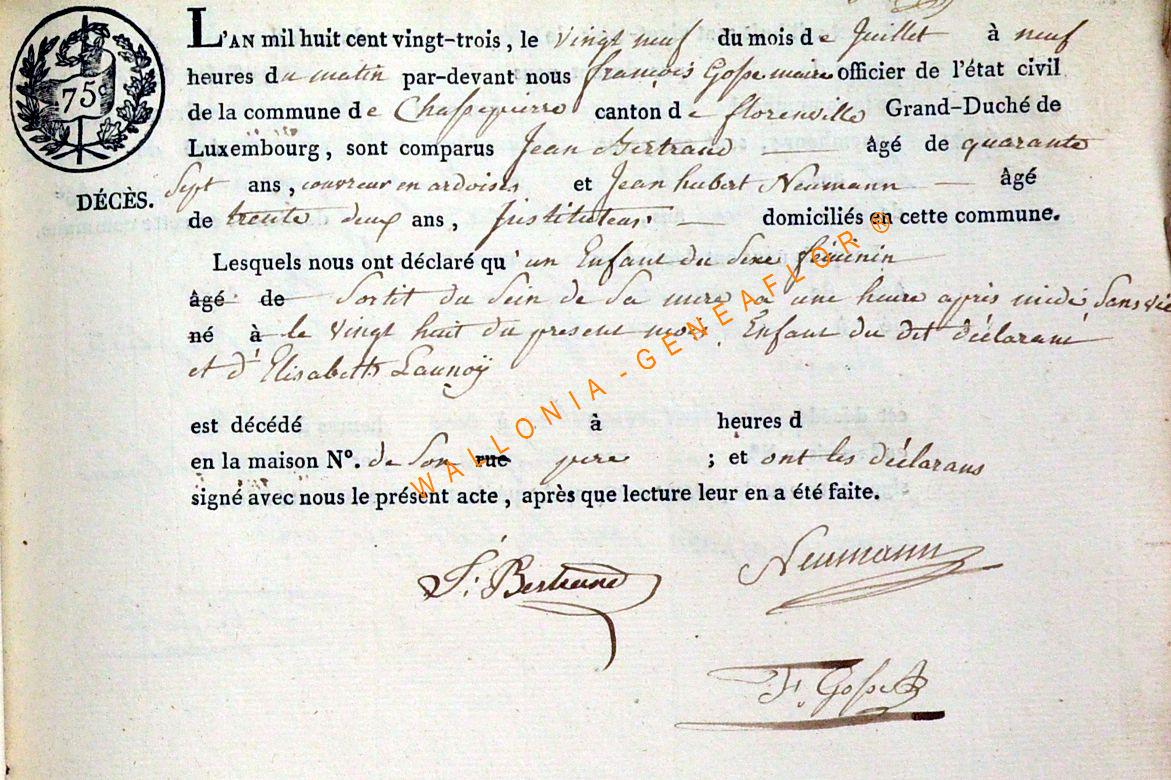 75ᶜ
L'AN mil huit cent vingt-trois, le vingt neuf du mois de Juillet à neuf
heures du matin par-devant nous françois Gosse maire officier de l'état civil
de la commune de Chassepierre canton de florenville Grand-Duché de
Luxembourg, sont comparus Jean Bertrand — âgé de quarante
DÉCÈS. Sept ans, couvreur en ardoises et Jean hubert Neumann — âgé
de trente deux ans, Instituteur — domiciliés en cette commune.
Lesquels nous ont déclaré qu'un Enfant du Sexe féminin
âgé de Sortit du Sein de Sa mere a une heure après midi Sans vie
né à le vingt huit du present mois, Enfant du dit déclarant
et d'Elisabeth Launoÿ
est décédé à heures d
en la maison N°. de Son rue pere ; et ont les déclarans
signé avec nous le présent acte, après que lecture leur en a été faite.
J. Bertrand Neumann
F. Gosse
WALLONIA - GENEAFLOR ®